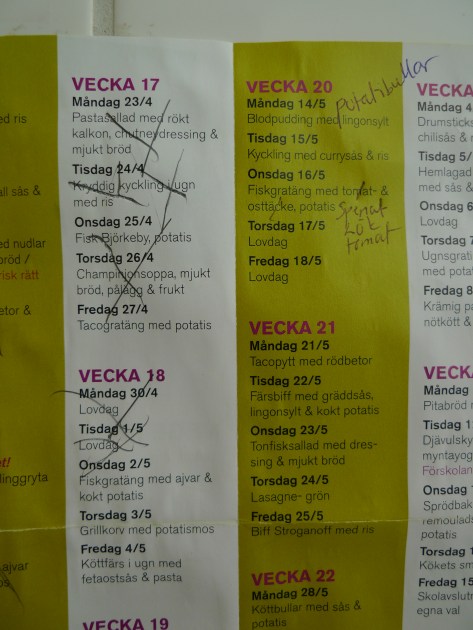 ed ris
all sås &
ed nudlar
bröd /
risk rätt
betor &
et!
linggryta
ajvar
s
VECKA 17
Måndag 23/4
Pastasallad med rökt
kalkon, chutneydressing &
mjukt bröd
Tisdag 24/4
Kryddig kyckling i ugn
med ris
Onsdag 25/4
Fisk Björkeby, potatis
Torsdag 26/4
Champinjonsoppa, mjukt
bröd, pålägg & frukt
Fredag 27/4
Tacogratäng med potatis
VECKA 18
Måndag 30/4
Lovdag
Tisdag 1/5
Lovdag
Onsdag 2/5
Fiskgratäng med ajvar &
kokt potatis
Torsdag 3/5
Grillkorv med potatismos
Fredag 4/5
Köttfärs i ugn med
fetaostsås & pasta
VECKA 19
VECKA 20
Potatibullar
Måndag 14/5
Blodpudding med lingonsylt
Tisdag 15/5
Kyckling med currysås & ris
Onsdag 16/5
Fiskgratäng med tomat- &
osttäcke, potatis
spenat
Lök
tomat
Torsdag 17/5
Lovdag
Fredag 18/5
Lovdag
VECKA 21
Måndag 21/5
Tacopytt med rödbetor
Tisdag 22/5
Färsbiff med gräddsås,
lingonsylt & kokt potatis
Onsdag 23/5
Tonfisksallad med dres-
sing & mjukt bröd
Torsdag 24/5
Lasagne- grön
Fredag 25/5
Biff Stroganoff med ris
VECKA 22
Måndag 28/5
Köttbullar med sås &
potatis
VECKA
Måndag 4
Drumsticks
chilisås & r
Tisdag 5/
Hemlagad
med sås &
Onsdag 6
Lovdag
Torsdag 7
Ugnsgrati
med pota
Fredag 8
Krämig pa
nötkött &
VECKA
Måndag
Pitabröd r
Tisdag 1
Djävulsky
myntayog
Förskolan
Onsdag
Sprödbak
remoulads
potatis
Torsdag 1
Kökets sm
Fredag 15
Skolavslutn
egna val